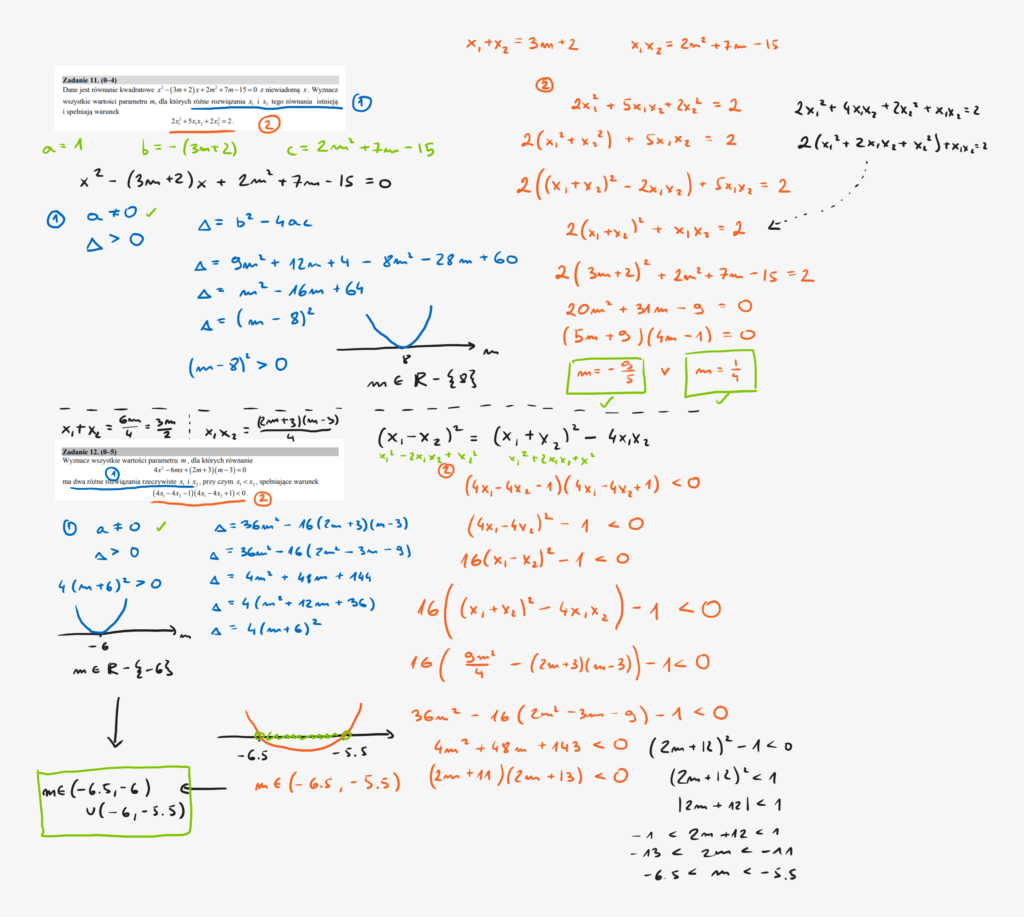 x₁+x₂ = 3m+2
x₁x₂ = 2m²+7m-15
Zadanie 11. (0–4)
Dane jest równanie kwadratowe x² − (3m + 2)x + 2m² + 7m − 15 = 0 z niewiadomą x. Wyznacz
wszystkie wartości parametru m, dla których różne rozwiązania x₁ i x₂ tego równania istnieją
i spełniają warunek
2x₁² + 5x₁x₂ + 2x₂² = 2.
①
②
a = 1
b = -(3m+2)
c = 2m²+7m-15
x² - (3m+2)x + 2m²+7m-15 = 0
① a ≠ 0 ✓
Δ > 0
Δ = b² - 4ac
Δ = 9m² + 12m + 4 - 8m² - 28m + 60
Δ = m² - 16m + 64
Δ = (m - 8)²
(m-8)² > 0
8
m
m ∈ R - {8}
②
2x₁² + 5x₁x₂ + 2x₂² = 2
2(x₁² + x₂²) + 5x₁x₂ = 2
2((x₁+x₂)² - 2x₁x₂) + 5x₁x₂ = 2
2(x₁+x₂)² + x₁x₂ = 2
2(3m+2)² + 2m² + 7m - 15 = 2
20m² + 31m - 9 = 0
(5m+9)(4m-1) = 0
m = -9/5 v m = 1/4
✓ ✓
2x₁² + 4x₁x₂ + 2x₂² + x₁x₂ = 2
2(x₁² + 2x₁x₂ + x₂²) + x₁x₂ = 2
x₁+x₂ = 6m/4 = 3m/2
x₁x₂ = (2m+3)(m-3)/4
(x₁-x₂)² = (x₁+x₂)² - 4x₁x₂
x₁² - 2x₁x₂ + x₂²
x₁² + 2x₁x₂ + x²
Zadanie 12. (0–5)
Wyznacz wszystkie wartości parametru m, dla których równanie
4x² − 6mx + (2m + 3)(m − 3) = 0
ma dwa różne rozwiązania rzeczywiste x₁ i x₂, przy czym x₁ < x₂, spełniające warunek
(4x₁ − 4x₂ − 1)(4x₁ − 4x₂ + 1) < 0.
①
②
① a ≠ 0 ✓
Δ > 0
4(m+6)² > 0
-6
m
m ∈ R - {-6}
Δ = 36m² - 16(2m+3)(m-3)
Δ = 36m² - 16(2m² - 3m - 9)
Δ = 4m² + 48m + 144
Δ = 4(m² + 12m + 36)
Δ = 4(m+6)²
②
(4x₁-4x₂-1)(4x₁-4x₂+1) < 0
(4x₁-4x₂)² - 1 < 0
16(x₁-x₂)² - 1 < 0
16((x₁+x₂)² - 4x₁x₂) - 1 < 0
16(9m²/4 - (2m+3)(m-3)) - 1 < 0
36m² - 16(2m² - 3m - 9) - 1 < 0
4m² + 48m + 143 < 0
(2m+11)(2m+13) < 0
(2m+12)² - 1 < 0
(2m+12)² < 1
|2m+12| < 1
-1 < 2m+12 < 1
-13 < 2m < -11
-6.5 < m < -5.5
-6.5 -5.5
m ∈ (-6.5, -5.5)
m ∈ (-6.5, -6)
∪ (-6, -5.5)